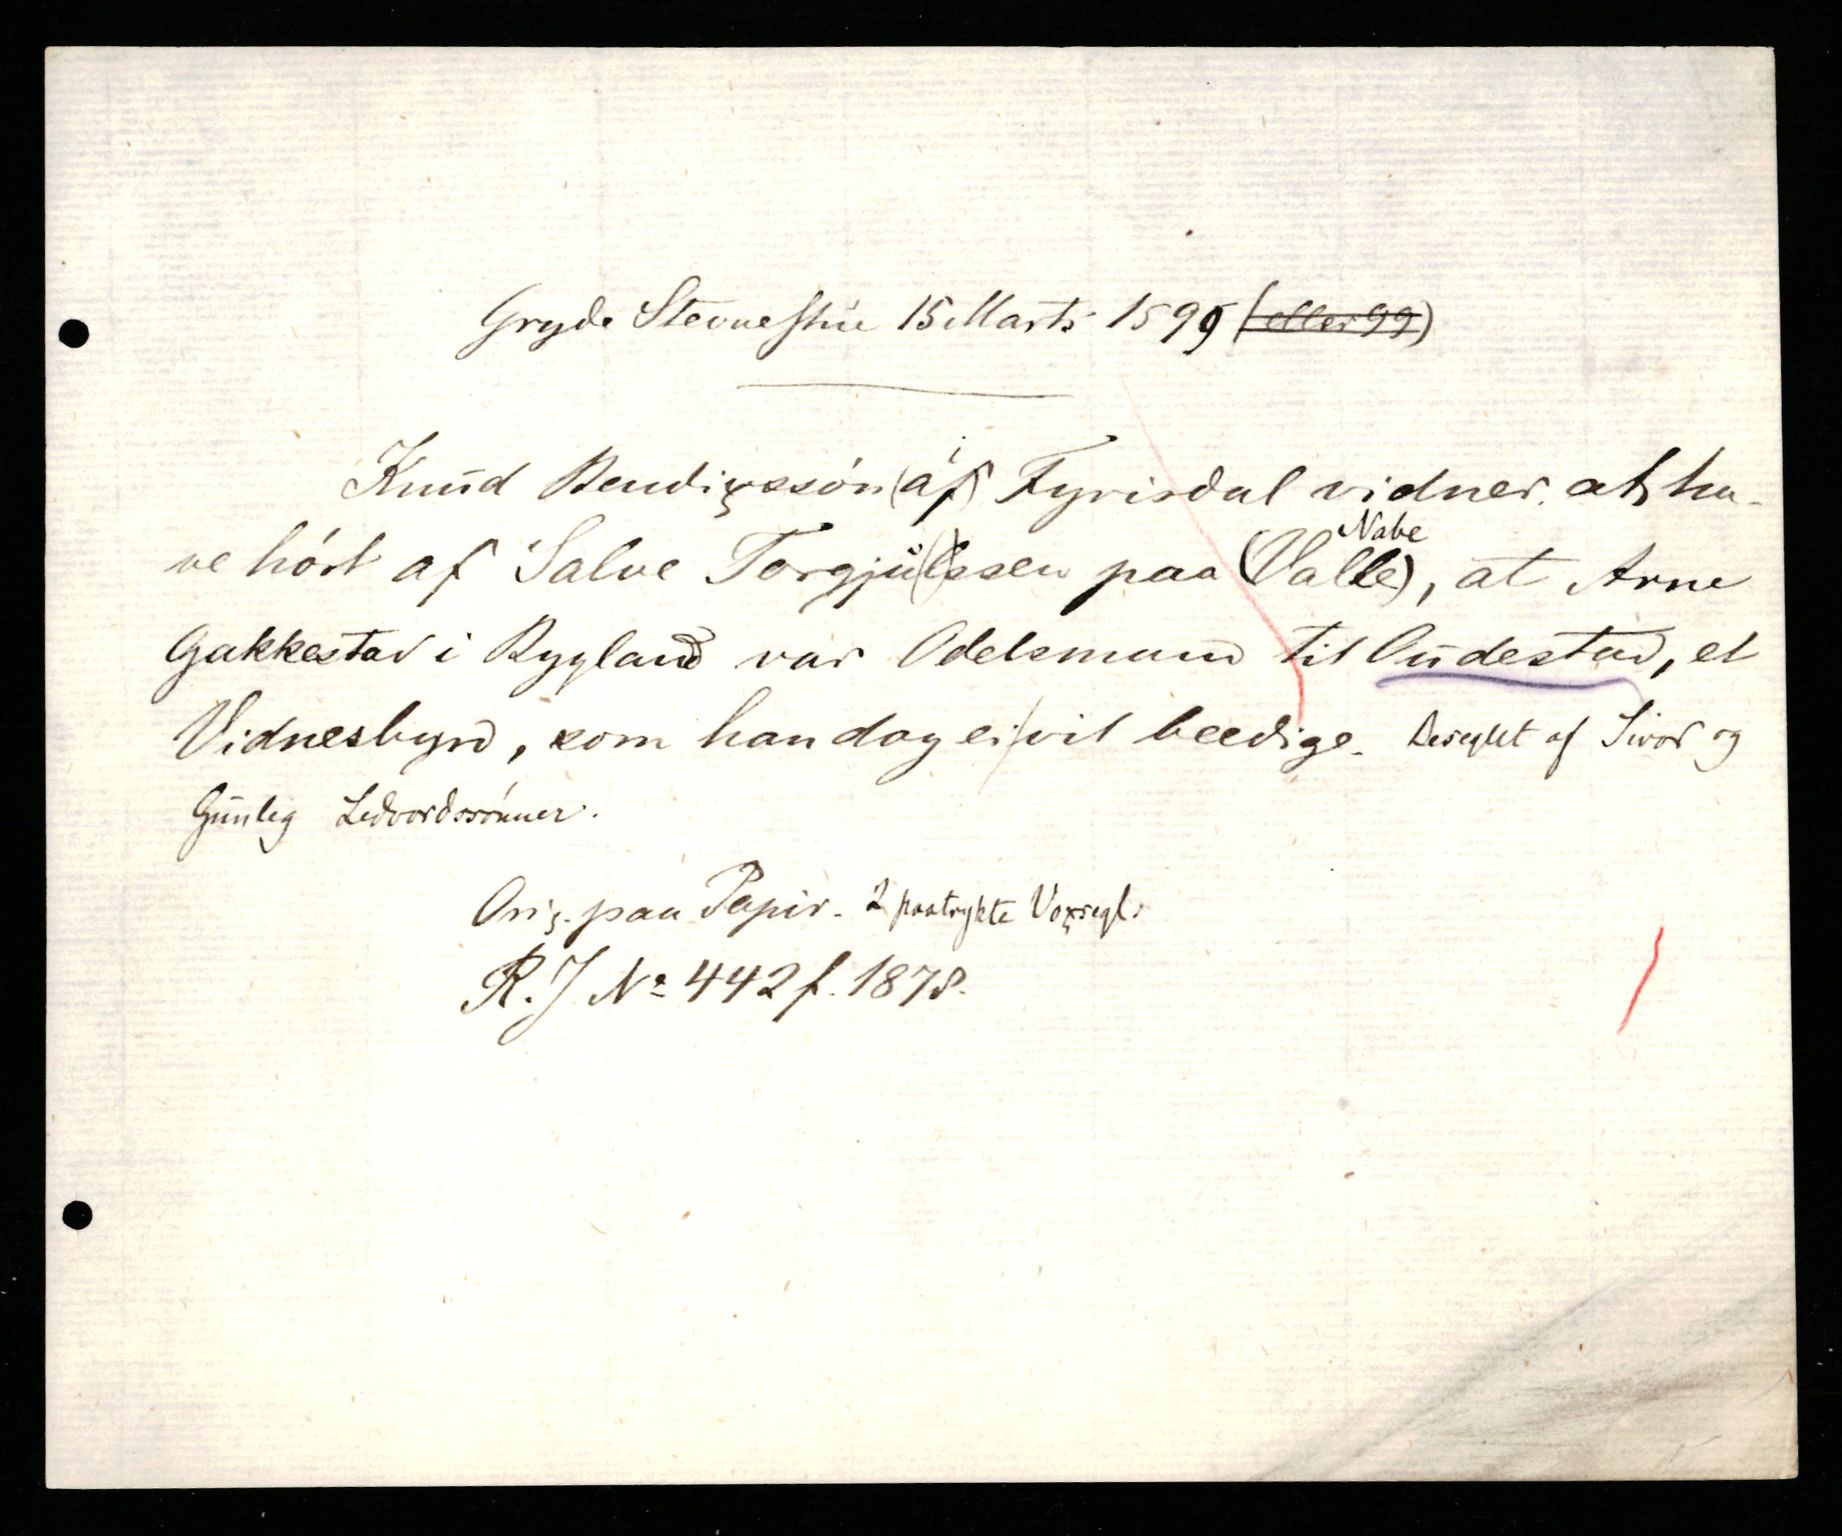 Gryde Stevnestue 15 Marts 1599 (eller 99)
Knud Bendixssön (af) Fyrisdal vidner, at ha-
ve hört af Salve Torgjulssen paa (Valle), at Arne
Nabe
Gakkestad i Bygland var Odelsmand til Oudestad, et
Vidnesbyrd, som han dog ei vil beedige. Beseglet af Sivor og
Gunleg Ledvordssönner.
Orig. paa Papir. 2 paatrykte Voxsegl.
R.J No 442 f. 1878.